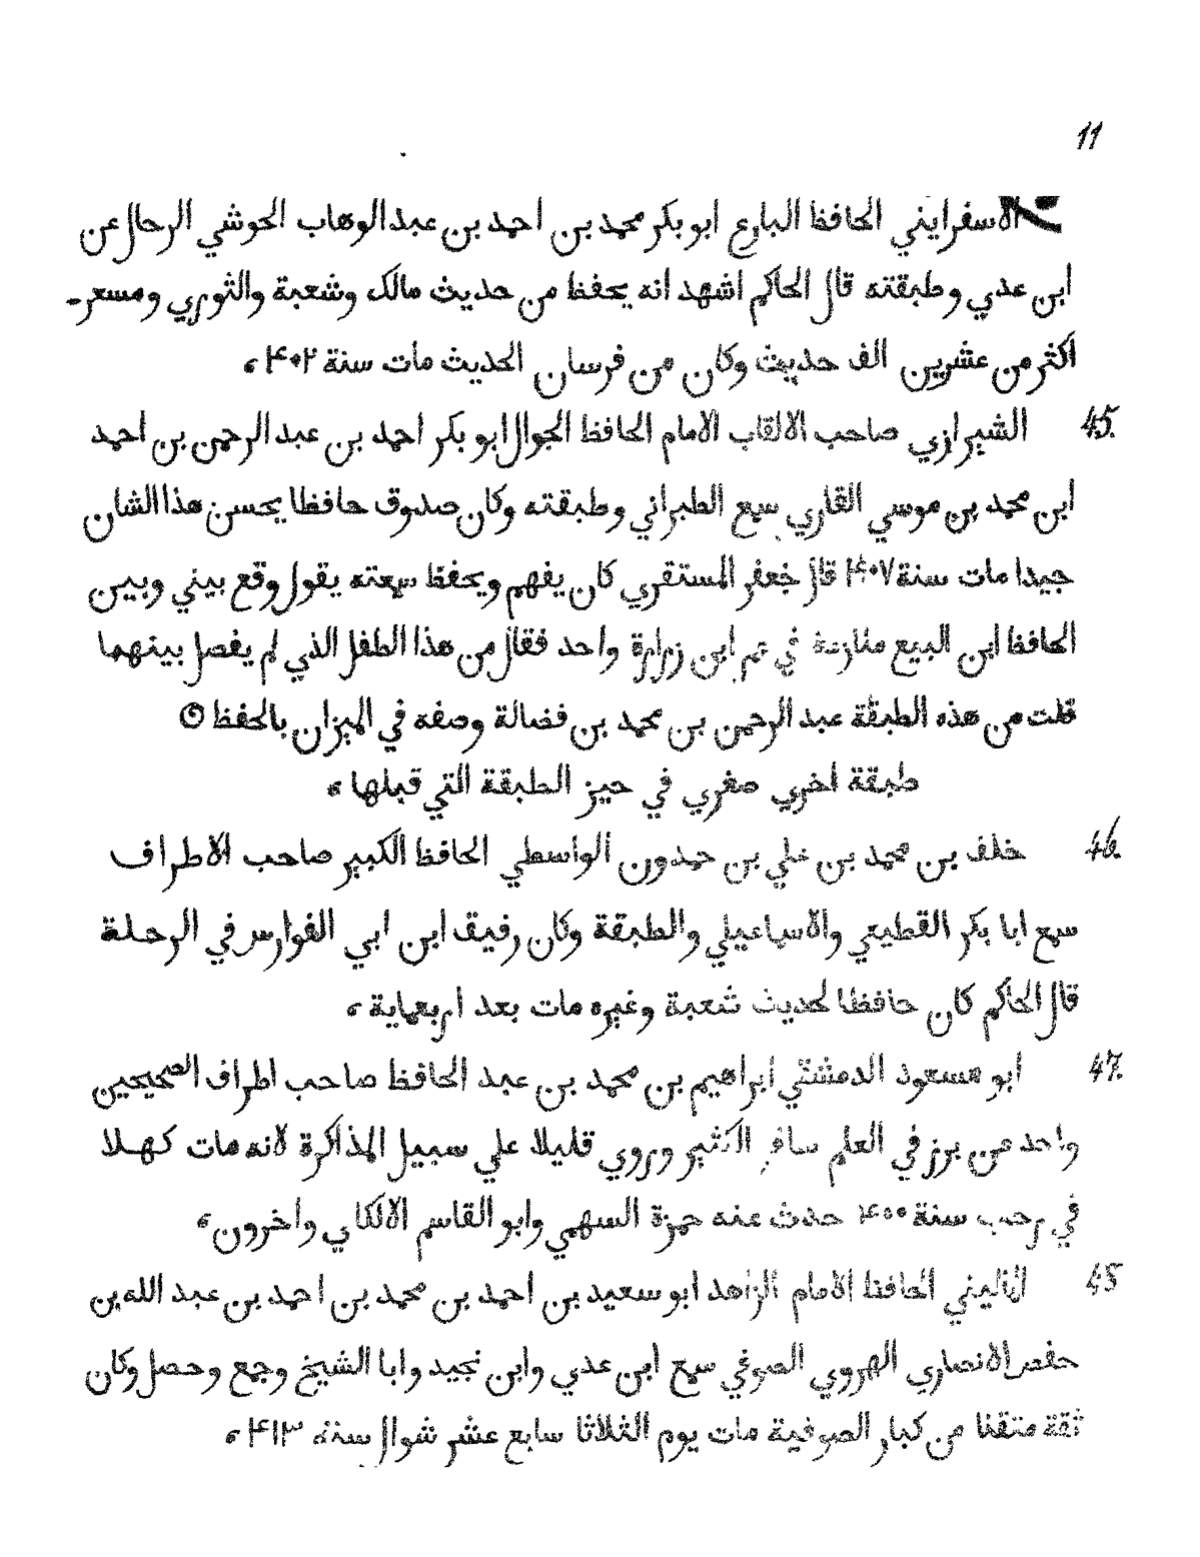 11
الاسفرايني الحافظ البارع ابو بكر محمد بن احمد بن عبد الوهاب الحوشي الرحال عن
ابن عدي وطبقته قال الحاكم اشهد انه يحفظ من حديث مالك وشعبة والثوري ومسعر
اكثر من عشرين الف حديث وكان من فرسان الحديث مات سنة ۴۰۲
45. الشيرازي صاحب الالقاب الامام الحافظ الجوال ابو بكر احمد بن عبد الرحمن بن احمد
ابن محمد بن موسي القاري سمع الطبراني وطبقته وكان صدوق حافظا يحسن هذا الشان
جيدا مات سنة ۴۰۷ قال جعفر المستقري كان يفهم ويحفظ سمعته يقول وقع بيني وبين
الحافظ ابن البيع منازعة في عم ابن زرارة واحد فقال من هذا الطفل الذي لم يفصل بينهما
قلت من هذه الطبقة عبد الرحمن بن محمد بن فضالة وصفه في الميزان بالحفظ
طبقة اخري صغري في حيز الطبقة التي قبلها
46. خلف بن محمد بن علي بن حمدون الواسطي الحافظ الكبير صاحب الاطراف
سمع ابا بكر القطيعي والاسماعيلي والطبقة وكان رفيق ابن ابي الفوارس في الرحلة
قال الحاكم كان حافظا لحديث شعبة وغيره مات بعد اربعماية
47. ابو مسعود الدمشقي ابراهيم بن محمد بن عبد الحافظ صاحب اطراف الصحيحين
واحد من برز في العلم سافر الكثير وروي قليلا علي سبيل المذاكرة لانه مات كهلا
في رجب سنة ۴۰۰ حدث عنه حمزة السهمي وابو القاسم الالكاي واخرون
45 الماليني الحافظ الامام الزاهد ابو سعيد بن احمد بن محمد بن احمد بن عبد الله بن
حفص الانصاري الهروي الصوفي سمع ابن عدي وابن نجيد وابا الشيخ وجمع وحصل وكان
ثقة متقنا من كبار الصوفية مات يوم الثلاثا سابع عشر شوال سنة ۴۱۳